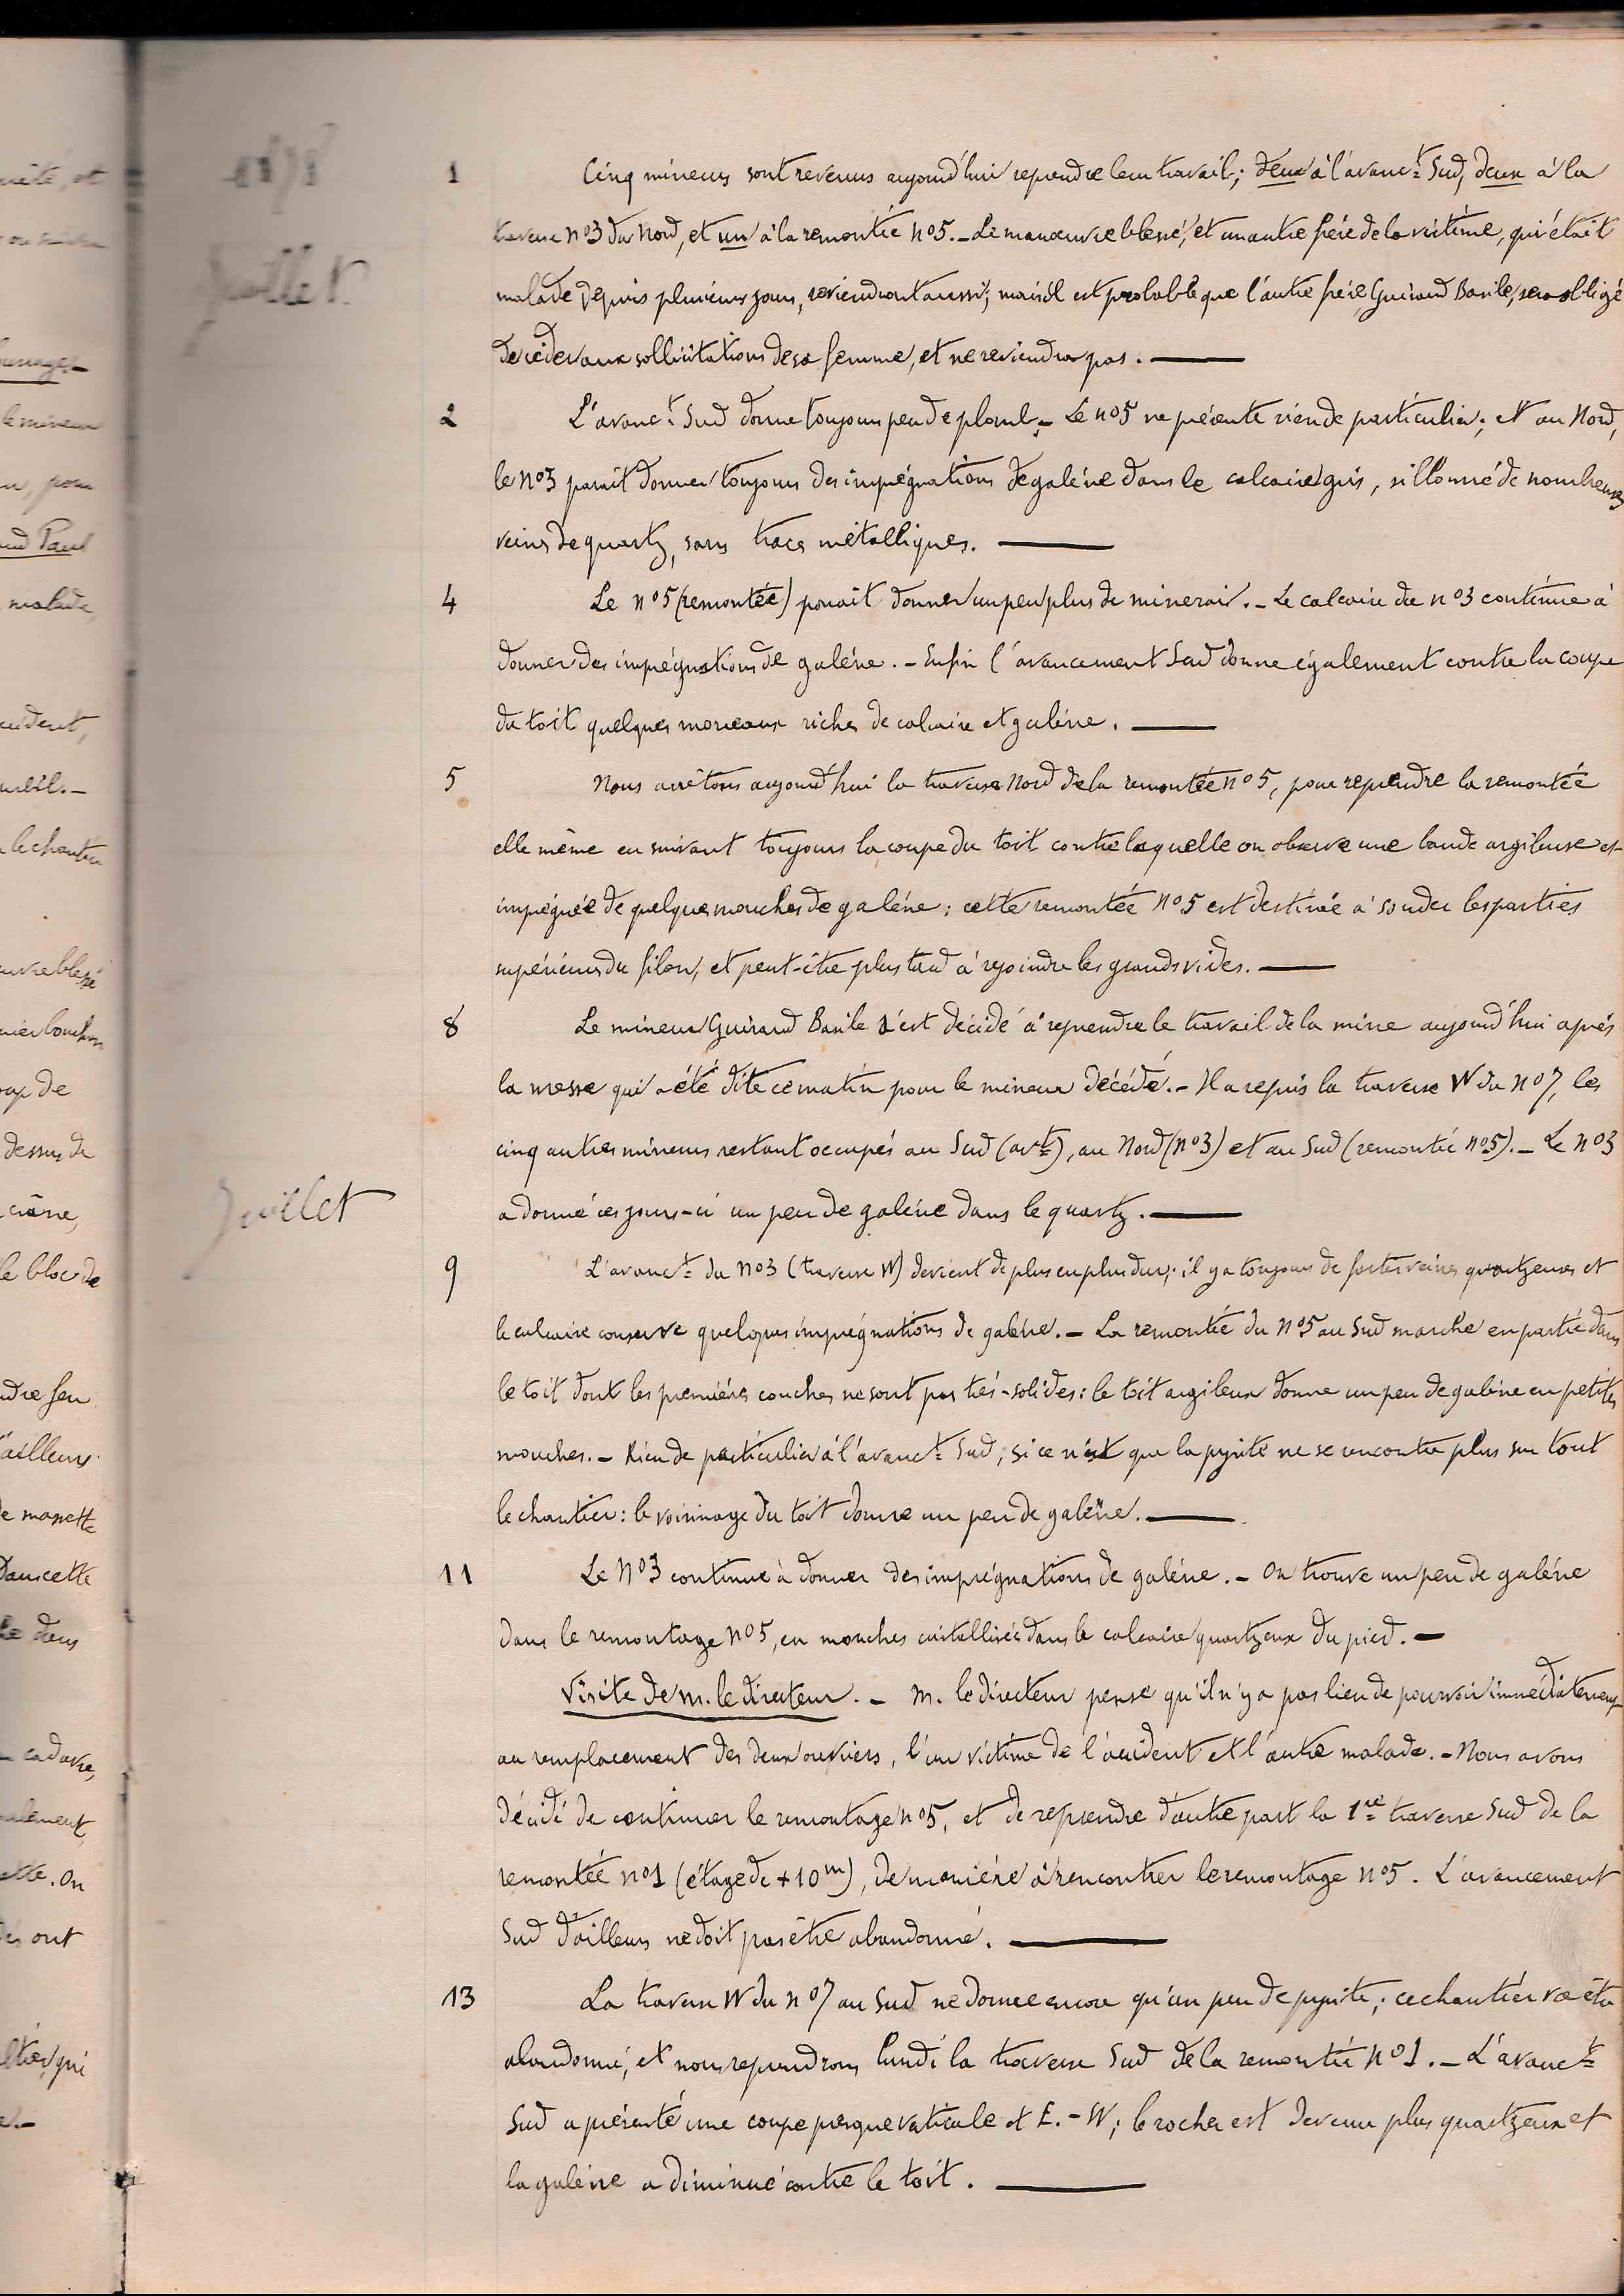 1878
Juillet.
1 Cinq mineurs sont revenus aujourd'hui reprendre leur travail; deux à l'avanct Sud, deux à la
traverse nº3 du Nord, et un à la remontée nº5. – Le manœuvre blessé, et un autre frère de la victime, qui était
malade depuis plusieurs jours, reviendront aussi; mais il est probable que l'autre frère, Guiraud Basile, sera obligé
de céder aux sollicitations de sa femme, et ne reviendra pas. —
2 L'avanct Sud donne toujours peu de plomb. – Le nº5 ne présente rien de particulier; et au Nord,
le nº3 parait donner toujours des imprégnations de galène dans le calcaire gris, sillonné de nombreuses
veines de quartz, sans traces métalliques. —
4 Le nº5 (remontée) parait donner un peu plus de minerai. – Le calcaire du nº3 continue à
donner des imprégnations de galène. – Enfin l'avancement Sud donne également contre la coupe
du toit quelques morceaux riches de calcaire et galène. —
5 Nous arrêtons aujourd'hui la traverse Nord de la remontée nº5, pour reprendre la remontée
elle même en suivant toujours la coupe du toit contre laquelle on observe une bande argileuse et
imprégnée de quelques mouches de galène; cette remontée nº5 est destinée à sonder les parties
supérieures du filon, et peut-être plus tard à rejoindre les grands vides. —
8 Le mineur Guiraud Basile s'est décidé à reprendre le travail de la mine aujourd'hui après
la messe qui a été dite ce matin pour le mineur décédé. – Il a repris la traverse W du nº7, les
cinq autres mineurs restant occupés au Sud (avt), au Nord (nº3) et au Sud (remontée nº5). – Le nº3
Juillet
a donné ces jours-ci un peu de galène dans le quartz. —
9 L'avanct du nº3 (traverse W) devient de plus en plus dur; il y a toujours de fortes veines quartzeuses et
le calcaire conserve quelques imprégnations de galène. – La remontée du nº5 au Sud marche en partie dans
le toit dont les premières couches ne sont pas très-solides: le toit argileux donne un peu de galène en petites
mouches. – Rien de particulier à l'avanct Sud, si ce n'est que la pyrite ne se rencontre plus sur tout
le chantier: le voisinage du toit donne un peu de galène. —
11 Le Nº3 continue à donner des imprégnations de galène. – On trouve un peu de galène
dans le remontage nº5, en mouches cristallisées dans le calcaire quartzeux du pied. –
Visite de M. le directeur. – M. le directeur pense qu'il n'y a pas lieu de pourvoir immédiatement
au remplacement des deux ouvriers, l'un victime de l'accident et l'autre malade. – Nous avons
décidé de continuer le remontage nº5, et de reprendre d'autre part la 1re traverse Sud de la
remontée nº1 (étage de +10m), de manière à rencontrer le remontage nº5. L'avancement
Sud d'ailleurs ne doit pas être abandonné. —
13 La traverse W du nº7 au Sud ne donne encore qu'un peu de pyrite; ce chantier va être
abandonné, et nous reprendrons lundi la traverse Sud de la remontée Nº1. – L'avanct
Sud a présenté une coupe presque verticale et E.-W; le rocher est devenu plus quartzeux et
la galène a diminué contre le toit. —